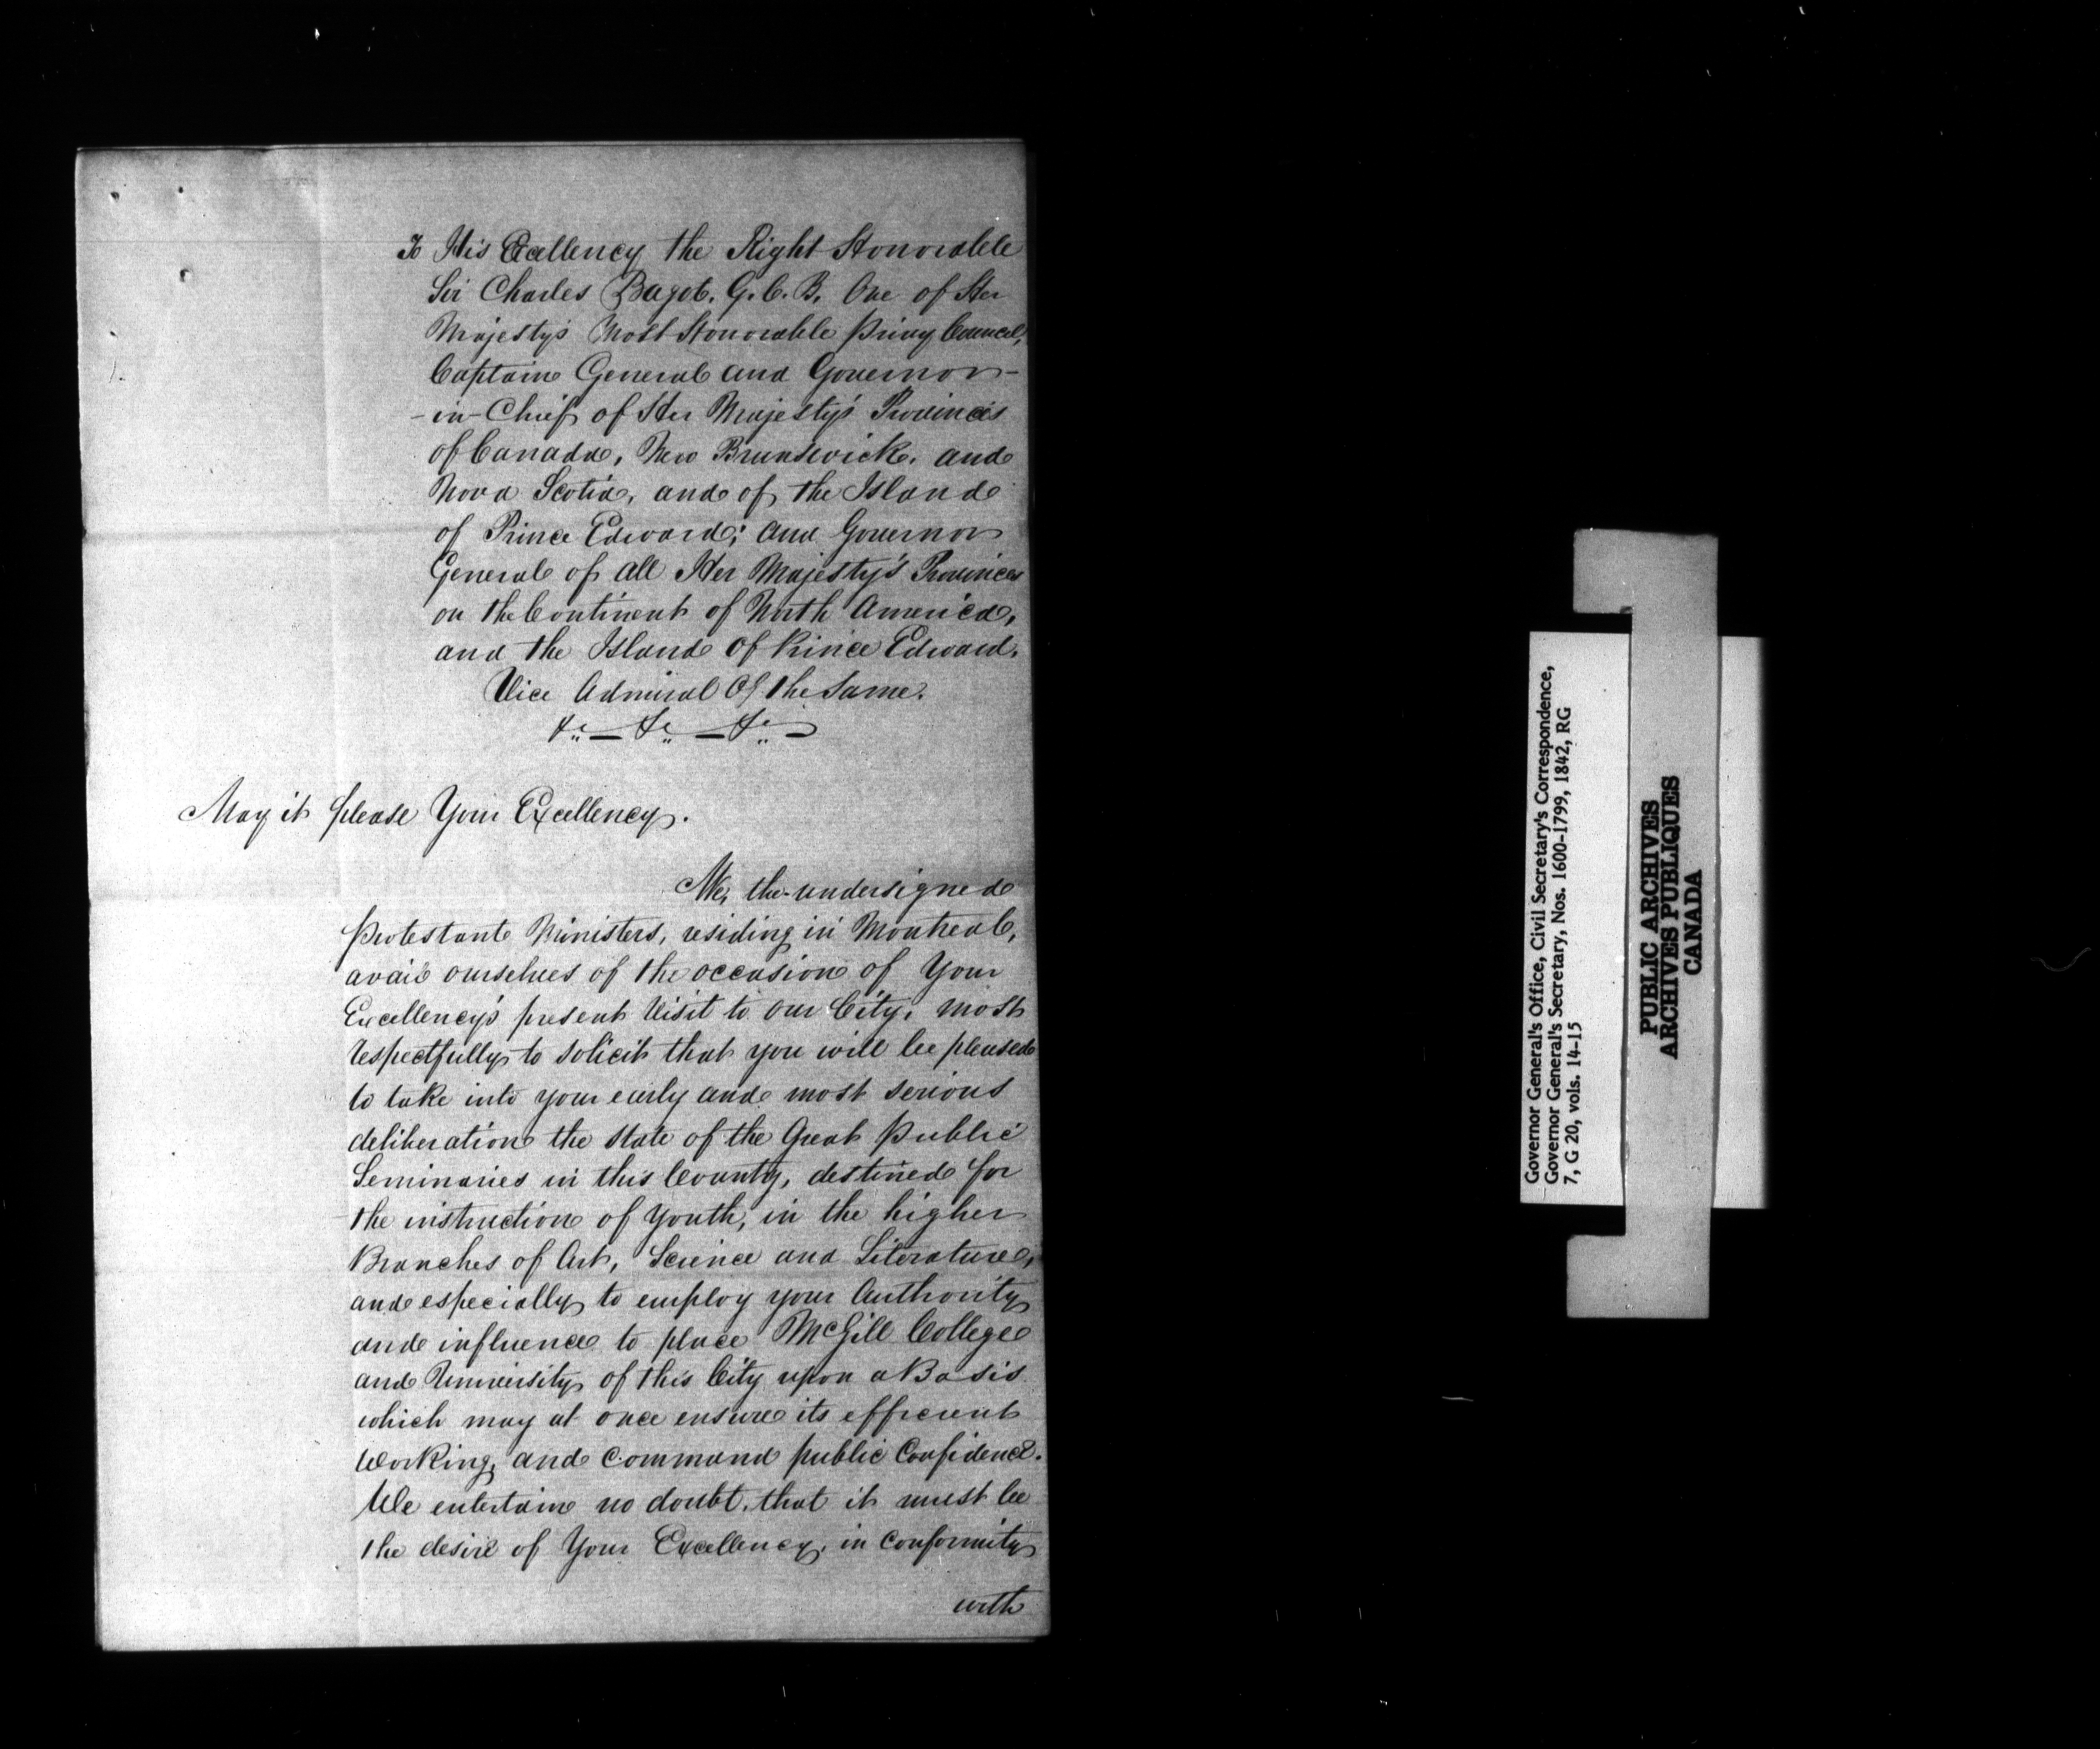 To His Excellency the Right Honorable
Sir Charles Bagot, G.C.B. One of Her
Majesty's Most Honorable Privy Council,
Captain General and Governor-
-in-Chief of Her Majesty's Provinces
of Canada, New Brunswick, and
Nova Scotia, and of the Island
of Prince Edward; and Governor
General of all Her Majesty's Provinces
on the Continent of North America,
and the Island of Prince Edward.
Vice Admiral of the Same.
&c — &c — &c —
May it please Your Excellency.
We, the undersigned
Protestant Ministers, residing in Montreal,
avail ourselves of the occasion of Your
Excellency's present Visit to our City, most
respectfully to solicit that you will be pleased
to take into your early and most serious
deliberation the state of the Great Public
Seminaries in this County, destined for
the instruction of Youth, in the higher
Branches of Art, Science and Literature,
and especially to employ your Authority
and influence to place McGill College
and University of this City upon a Basis
which may at once ensure its efficient
working, and command public Confidence.
We entertain no doubt, that it must be
the desire of Your Excellency, in conformity
with
Governor General's Office, Civil Secretary's Correspondence,
Governor General's Secretary, Nos. 1600-1799, 1842, RG
7, G 20, vols. 14-15
PUBLIC ARCHIVES
ARCHIVES PUBLIQUES
CANADA